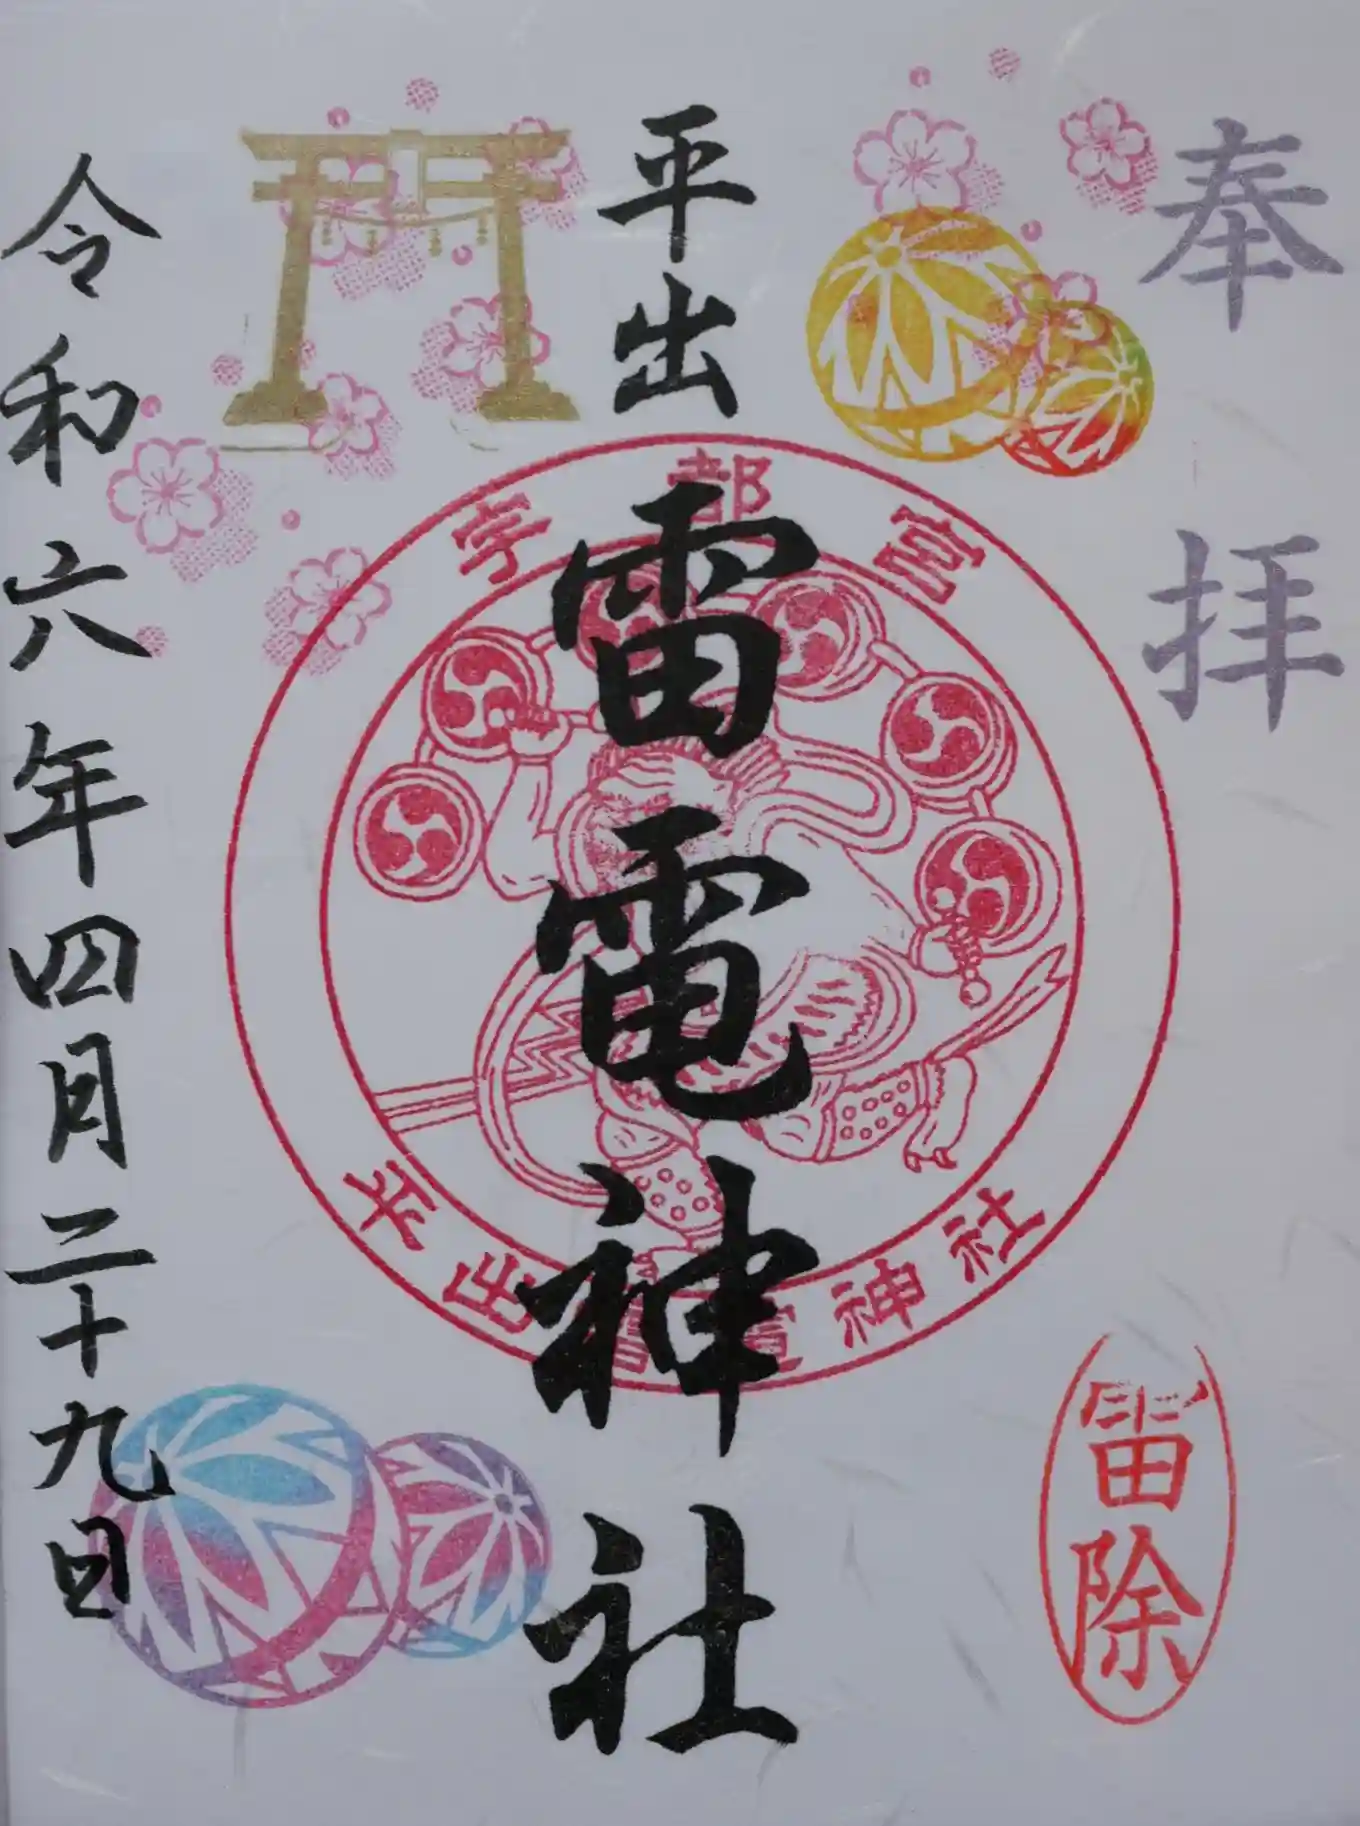 奉拝
雷除
平出
雷電神社
宇都宮
平出雷電神社
令和六年四月二十九日